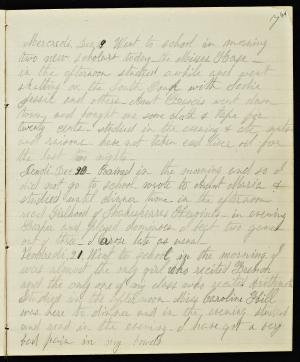 Mercredi, Dec, 9 Went to school in morning
two new scholars today the Misses Hase
in the afternoon studied awhile and went
skating on the South Pond with Sadie
Jessie and others Aunt Frances went down
town and bought me some cloth & tape for
twenty cents. studied in the evening & ate nuts
and raisins have not taken cod liver oil for
the last two nights
Jeudi, Dec. 20 Rained in the morning and so I
did not go to school wrote to Aunt Maria &
studied until dinner time in the afternoon
read Girlhood of Shakespeares Heroines in evening
and played dominoes I beat two games
out of three I arose late as usual
Vendredi, 21 Went to school in the morning I
was almost the only girl who recited French
and the only one of my class who recited
Studied in the afternoon Miss Caroline Hill
was here to dinner and in the evening studied
and read in the evening I have got a very
bad pain in my bowels